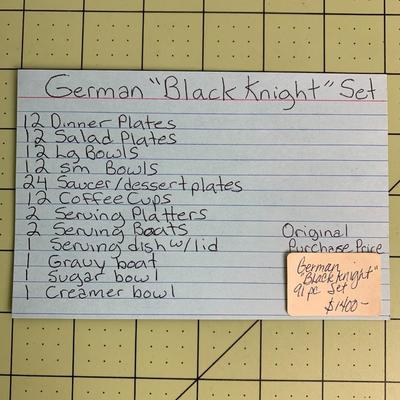 German "Black Knight" Set
12 Dinner Plates
12 Salad Plates
12 Lg Bowls
12 sm Bowls
24 Saucer/dessert plates
12 Coffee Cups
2 Serving Platters
2 Serving Boats
1 Serving dish w/lid
1 Gravy boat
1 Sugar bowl
1 Creamer bowl
Original
Purchase Price
German
"Black Knight"
91 pc Set
$1400-